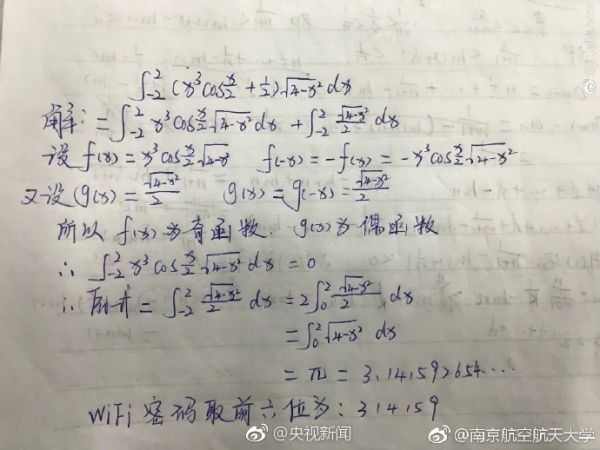 ∫₋₂² (x³cos x/2 + 1/2)√4-x² dx
解: = ∫₋₂² x³cos x/2 √4-x² dx + ∫₋₂² √4-x²/2 dx
设 f(x) = x³cos x/2 √4-x f(-x) = -f(x) = -x³cos x/2 √4-x²
又设 g(x) = √4-x²/2 g(x) = g(-x) = √4-x²/2
所以 f(x) 为奇函数. g(x) 为偶函数
∴ ∫₋₂² x³cos x/2 √4-x² dx = 0
∴ 原式 = ∫₋₂² √4-x²/2 dx = 2∫₀² √4-x²/2 dx
= ∫₀² √4-x² dx
= π = 3.141592654...
WiFi 密码取前六位为: 314159
@央视新闻
@南京航空航天大学